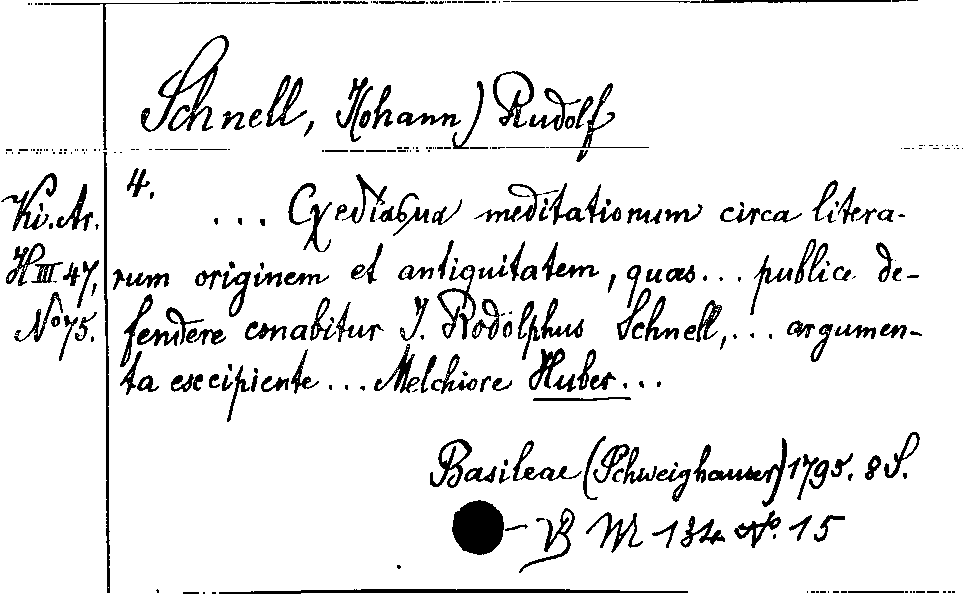 Schnell, J(ohann) Rudolf
Ki. Ar.
H III 47,
No 75.
4.
... Σχεδίασμα meditationum circa litera-
rum originem et antiquitatem, quas ... publice de-
fendere conabitur J. Rodolphus Schnell, ... argumen-
ta excipiente ... Melchiore Huber ...
Basileae (Schweighauser) 1795. 8 S.
– VB M 134 No. 15